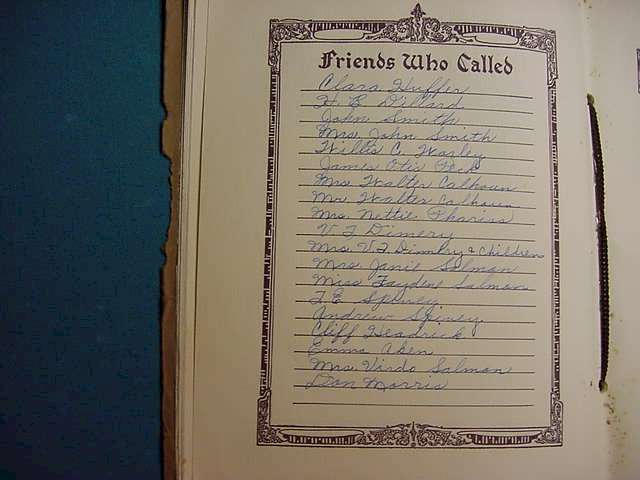 Friends Who Called
Clara Huffer
H. E. Dillard
John Smith
Mrs. John Smith
Willis C. Worley
James Otis Peck
Mrs Walter Calhoun
Mr. Walter Calhoun
Mrs. Nettie Phariss
V. J. Dimery
Mrs. V. J. Dimery & Children
Mrs. Janie Salmon
Miss Faydene Salmon
Spivey
Andrew Spivey
Cliff Headrick
Emma Aken
Mrs. Virdo Salmon
Don Morris